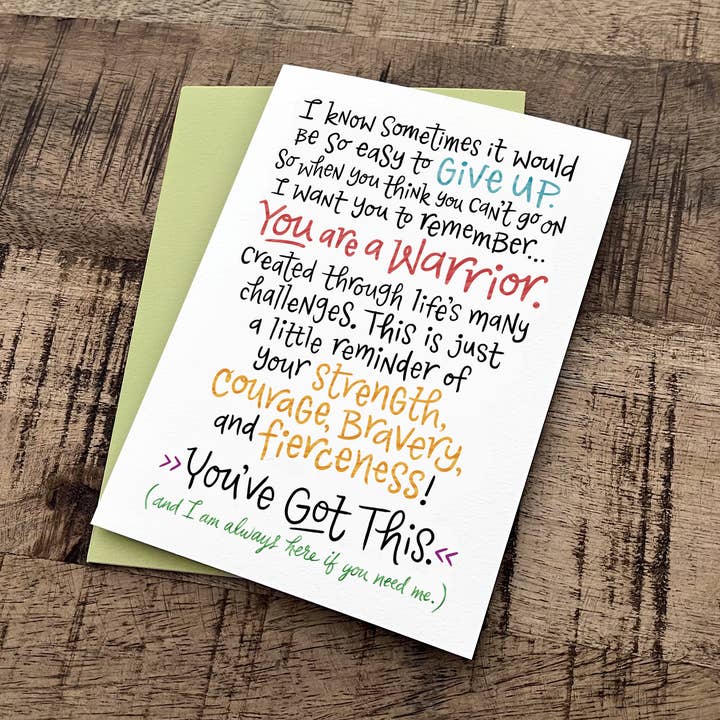 I know sometimes it would
Be so easy to Give up.
So when you think you can't go on
I want you to remember...
You are a Warrior.
Created through life's many
challenges. This is just
a little reminder of
your Strength,
Courage, Bravery,
and fierceness!
>>You've Got This.<<
(and I am always here if you need me.)